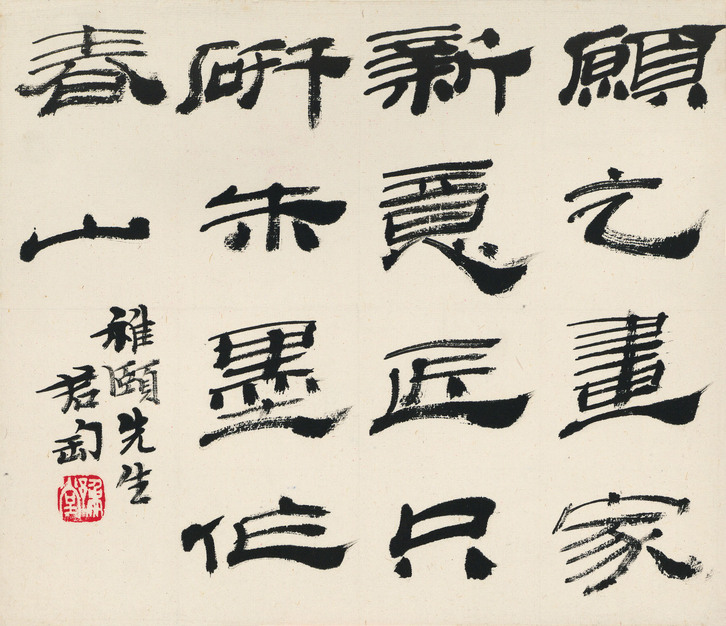 願乞畫家
新意匠只
研朱墨作
春山
雅頤先生
君匋